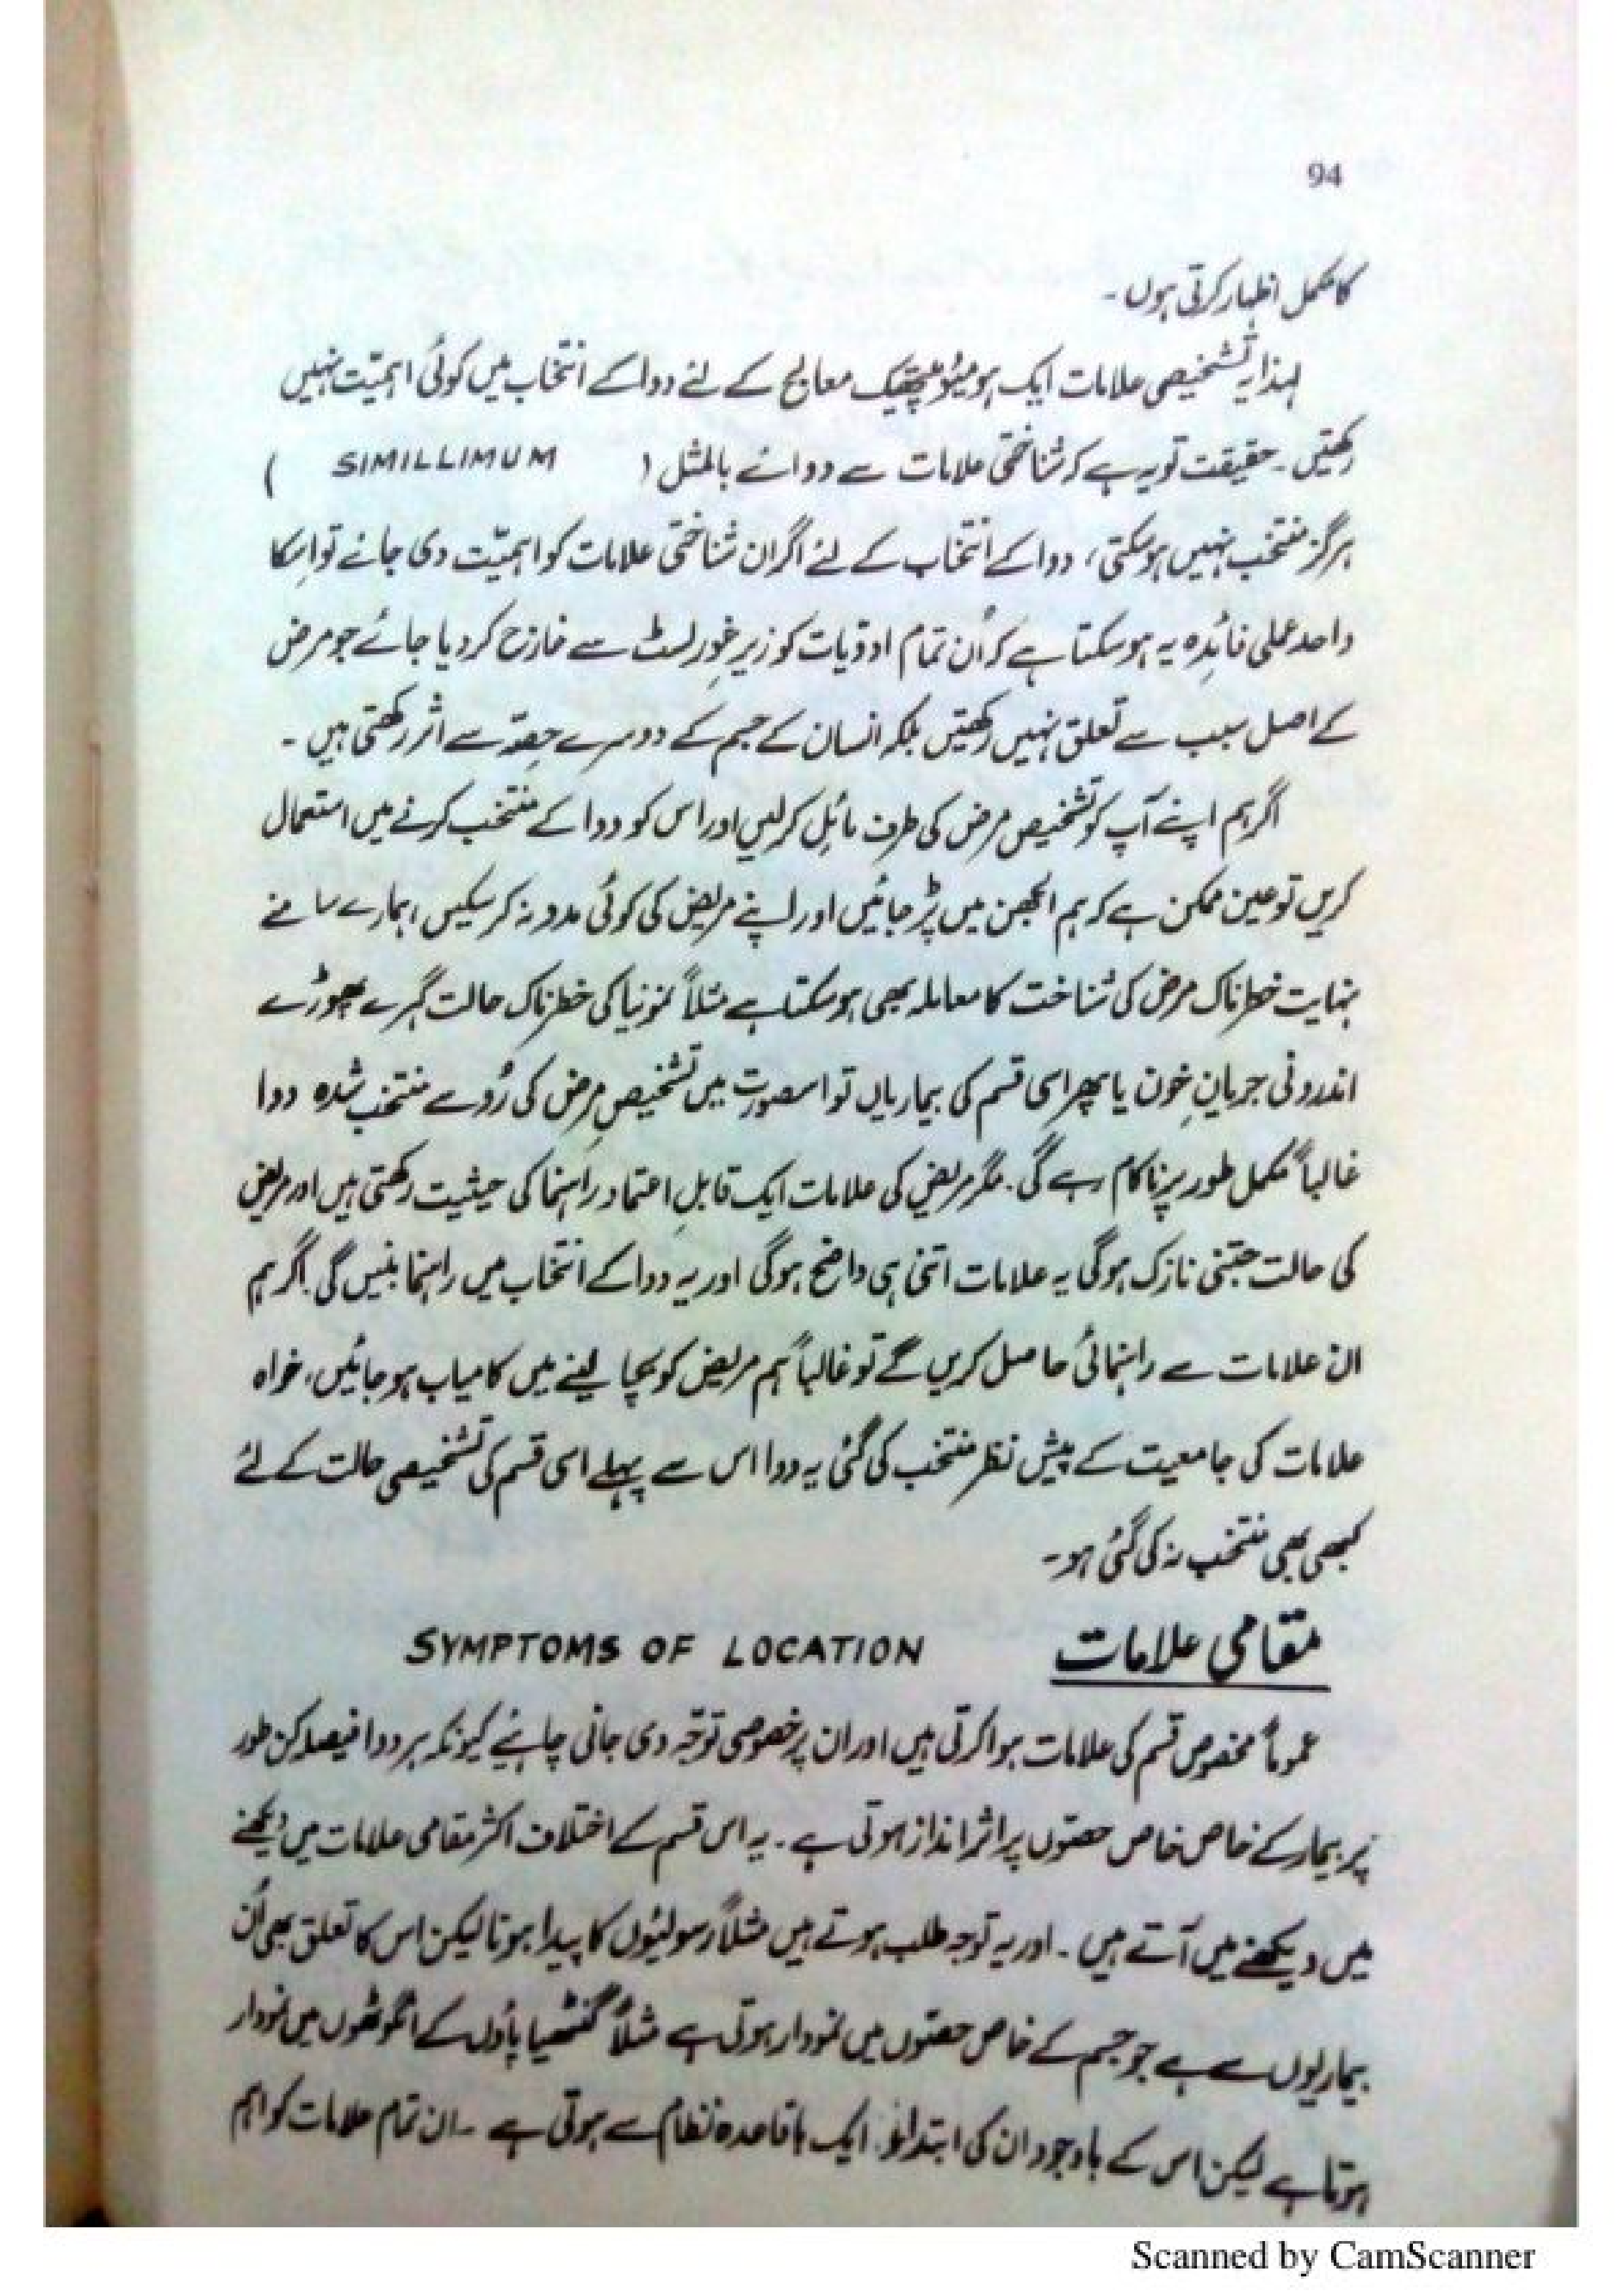 94
کا مکمل اظہار کرتی ہوں ۔
لہذا یہ تشخیصی علامات ایک ہومیوپیتھک معالج کے لئے دوا کے انتخاب میں کوئی اہمیّت نہیں
رکھتیں ۔ حقیقت تو یہ ہے کہ شناختی علامات سے دوائے بالمثل ( SIMILLIMUM )
ہرگز منتخب نہیں ہو سکتی ، دوا کے انتخاب کے لئے اگر ان شناختی علامات کو اہمیّت دی جائے تو اسکا
واحد عملی فائدہ یہ ہو سکتا ہے کہ اُن تمام ادویات کو زیرِ غور لسٹ سے خارج کر دیا جائے جو مرض
کے اصل سبب سے تعلق نہیں رکھتیں بلکہ انسان کے جسم کے دوسرے حصّہ سے اثر رکھتی ہیں ۔
اگر ہم اپنے آپ کو تشخیص مرض کی طرف مائل کر لیں اور اس کو دوا کے منتخب کرنے میں استعمال
کریں تو عین ممکن ہے کہ ہم الجھن میں پڑ جائیں اور اپنے مریض کی کوئی مدد نہ کر سکیں ، ہمارے سامنے
نہایت خطرناک مرض کی شناخت کا معاملہ بھی ہو سکتا ہے مثلاً نمونیا کی خطرناک حالت گہرے پھوڑے
اندرونی جریانِ خون یا پھر اسی قسم کی بیماریاں تو اس صورت میں تشخیصِ مرض کی رُو سے منتخب شدہ دوا
غالباً مکمل طور پر ناکام رہے گی ۔ مگر مریض کی علامات ایک قابلِ اعتماد راہنما کی حیثیت رکھتی ہیں اور مریض
کی حالت جتنی نازک ہوگی یہ علامات اتنی ہی واضح ہوگی اور یہ دوا کے انتخاب میں راہنما بنیں گی ۔ اگر ہم
ان علامات سے راہنمائی حاصل کریں گے تو غالباً ہم مریض کو بچا لینے میں کامیاب ہو جائیں ، خواہ
علامات کی جامعیت کے پیش نظر منتخب کی گئی یہ دوا اس سے پہلے اسی قسم کی تشخیصی حالت کے لئے
کبھی بھی منتخب نہ کی گئی ہو ۔
مقامی علامات SYMPTOMS OF LOCATION
عموماً مخصوص قسم کی علامات ہوا کرتی ہیں اور ان پر خصوصی توجّہ دی جانی چاہئے کیونکہ ہر دوا فیصلہ کن طور
پر بیمار کے خاص خاص حصّوں پر اثر انداز ہوتی ہے ۔ یہ اس قسم کے اختلاف اکثر مقامی علامات میں دیکھنے
میں دیکھنے میں آتے ہیں ۔ اور یہ توجہ طلب ہوتے ہیں مثلاً رسولیوں کا پیدا ہونا لیکن اس کا تعلق بھی اُن
بیماریوں سے ہے جو جسم کے خاص حصّوں میں نمودار ہوتی ہے مثلاً گنٹھیا پاؤں کے انگوٹھوں میں نمودار
ہوتا ہے لیکن اس کے باوجود ان کی ابتدا ایک باقاعدہ نظام سے ہوتی ہے ۔ ان تمام علامات کو اہم
Scanned by CamScanner